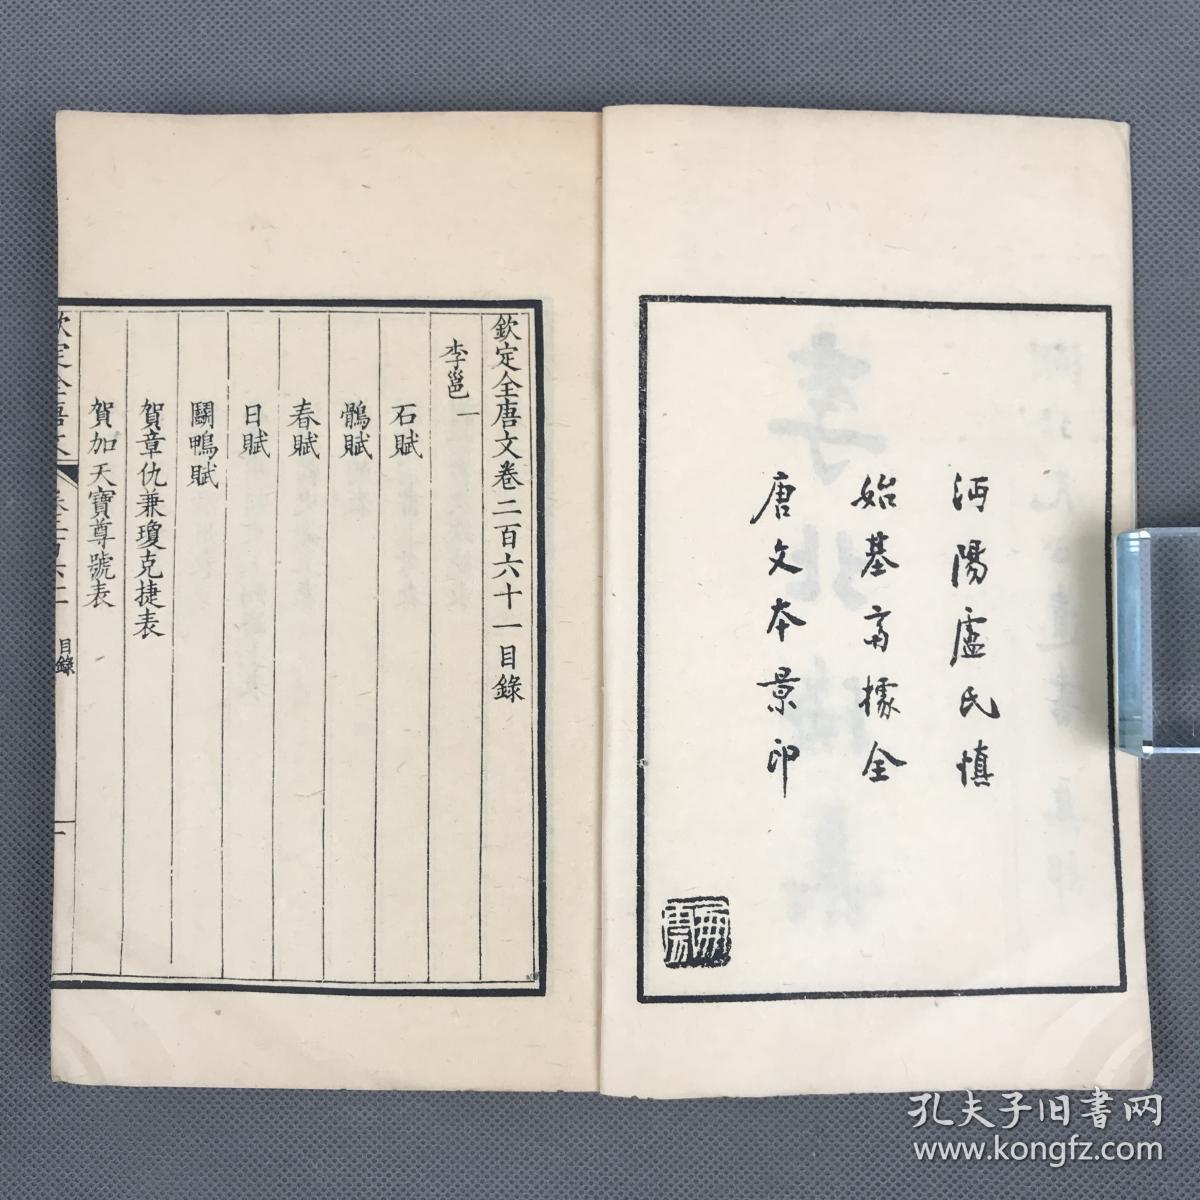 沔陽盧氏慎
始基齋據全
唐文本景印
欽定全唐文卷二百六十一目錄
李邕一
石賦
鶻賦
春賦
日賦
鬬鴨賦
賀章仇兼瓊克捷表
賀加天寶尊號表
欽定全唐文
目錄
孔夫子旧书网
www.kongfz.com